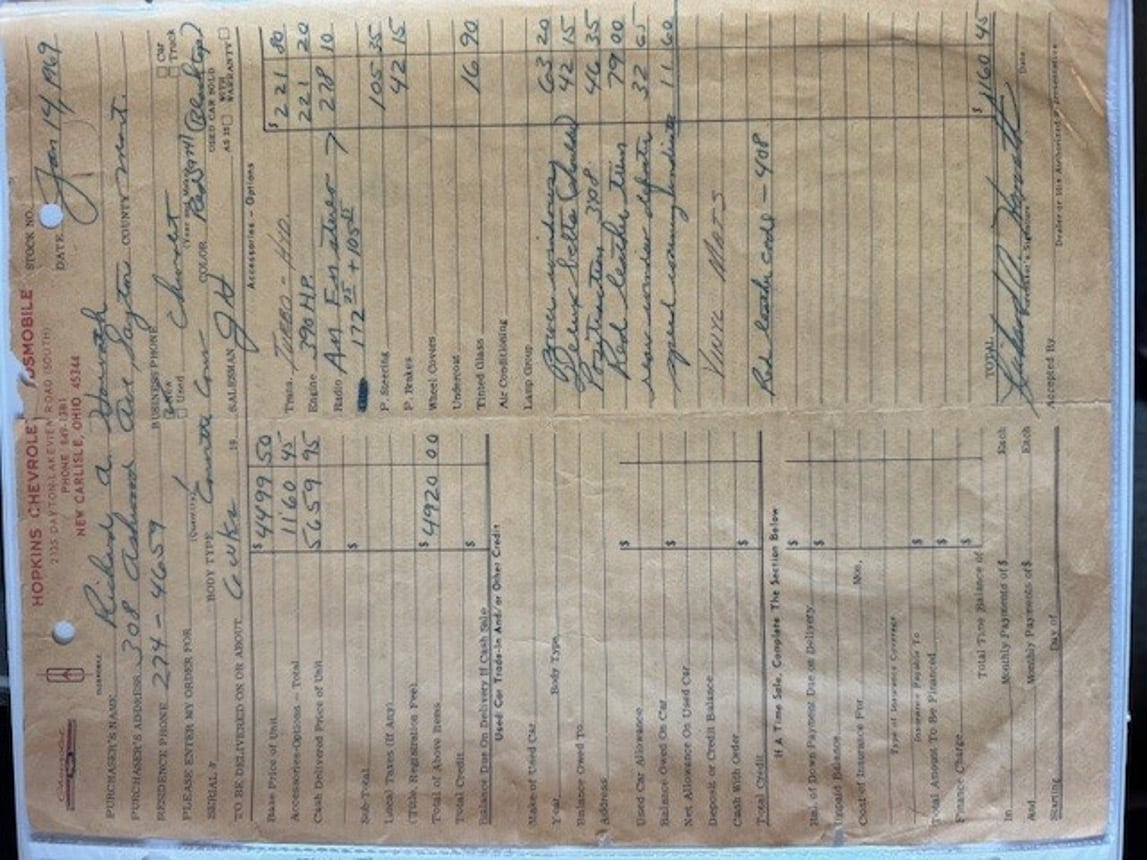 HOPKINS CHEVROLET OLDSMOBILE
2335 DAYTON-LAKEVIEW ROAD (SOUTH)
PHONE 849-1381
NEW CARLISLE, OHIO 45344
STOCK NO.
DATE Jan 14, 1969
PURCHASER'S NAME Richard A.
PURCHASER'S ADDRESS 308 Ashwood Ave Dayton COUNTY Mont.
RESIDENCE PHONE 274-4659 BUSINESS PHONE
PLEASE ENTER MY ORDER FOR 1 (Quantity) New Used Chevrolet (Year and Make) Car Truck
SERIAL # BODY TYPE Conv COLOR Red (Black top)
TO BE DELIVERED ON OR ABOUT 6 wks 19 SALESMAN JH
USED CAR SOLD
AS IS WITH WARRANTY
Base Price of Unit $ 4499 50
Accessories-Options - Total 1160 45
Cash Delivered Price of Unit 5659 95
$
Sub-Total
Local Taxes (If Any)
(Title, Registration Fee)
Total of Above Items $ 4920 00
Total Credit
Balance Due On Delivery If Cash Sale $
Used Car Trade-In And/or Other Credit
Make of Used Car
Year Body Type
Balance Owed To
Address
Used Car Allowance $
Balance Owed On Car
Net Allowance On Used Car $
Deposit or Credit Balance
Cash With Order
Total Credit $
If A Time Sale, Complete The Section Below
Bal. of Down Payment Due on Delivery $
Unpaid Balance $
Cost of Insurance For Mos.
Type of Insurance Coverage
Insurance Payable To
Total Amount To Be Financed $
Finance Charge $
Total Time Balance of $
In Monthly Payments of $ Each
And Monthly Payments of $ Each
Starting Day of
Accessories - Options
Trans. TURBO - HYD. $ 221 80
Engine 390 H.P. 221 20
Radio AM Fm stereo 278 10
172 75 + 105 35
P. Steering 105 35
P. Brakes 42 15
Wheel Covers
Undercoat
Tinted Glass 16 90
Air Conditioning
Lamp Group
Power windows 63 20
Deluxe belts (shoulder) 42 15
Positraction 308 46 35
Red leather trim 79 00
rear window defroster 32 65
speed warning indicator 11 60
VINYL MATS
Red leather code - 408
TOTAL $1160 45
Purchaser's Signature
Accepted By
Dealer or His Authorized Representative
Date